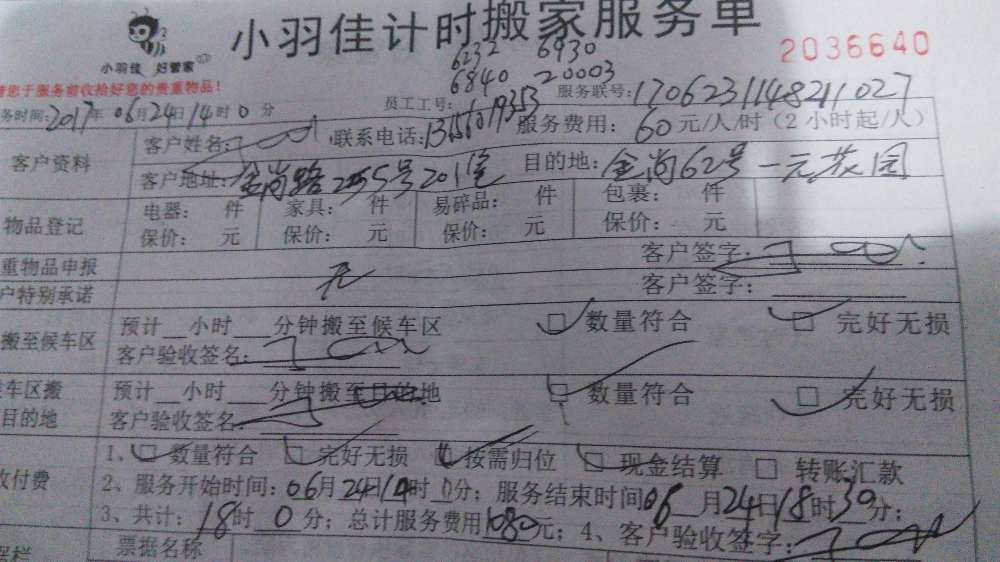 小羽佳计时搬家服务单
小羽佳 好管家
2036640
请您于服务前收拾好您的贵重物品!
6232 6930
6840 20003
务时间:2017年06月24日14时0分 员工工号: 服务联号:1706231148211027
客户资料 客户姓名: 联系电话: 服务费用:60元/人/时(2小时起/人)
客户地址:金尚路255号201室 目的地:金尚62号一元花园
物品登记 电器: 件 家具: 件 易碎品: 件 包裹: 件
保价: 元 保价: 元 保价: 元 保价: 元
重物品申报 无 客户签字:
户特别承诺 客户签字:
搬至候车区 预计__小时___分钟搬至候车区 □ 数量符合 □ 完好无损
客户验收签名:
车区搬 预计__小时___分钟搬至目的地 □ 数量符合 □ 完好无损
目的地 客户验收签名:
收付费 1、□ 数量符合 □ 完好无损 □ 按需归位 □ 现金结算 □ 转账汇款
2、服务开始时间:06月24日14时0分; 服务结束时间06月24日18时30分;
3、共计:18时0分; 总计服务费用1080元; 4、客户验收签字:
据栏 票据名称